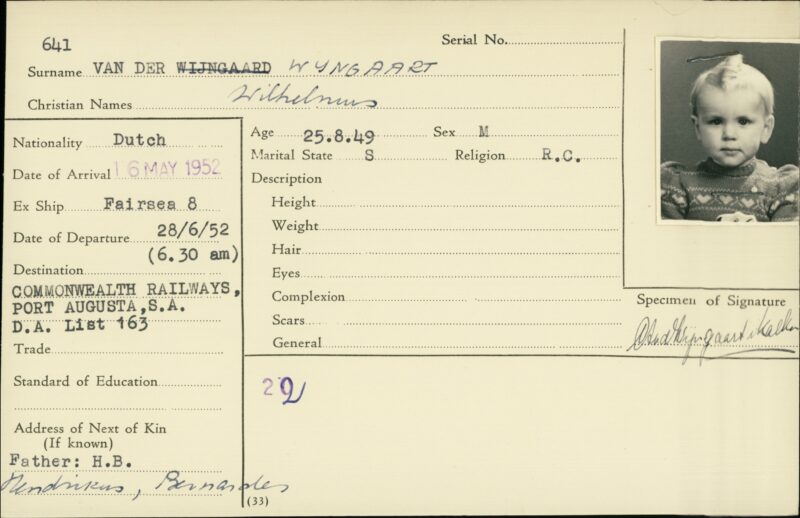 641
Serial No.
Surname VAN DER WIJNGAARD WYNGAART
Christian Names Wilhelmus
Nationality Dutch
Date of Arrival 16 MAY 1952
Ex Ship Fairsea 8
Date of Departure 28/6/52
(6.30 am)
Destination
COMMONWEALTH RAILWAYS,
PORT AUGUSTA, S.A.
D.A. List 163
Trade
Standard of Education
Address of Next of Kin
(If known)
Father: H.B.
Hendrikus, Bernardes
(33)
Age 25.8.49 Sex M
Marital State S Religion R.C.
Description
Height
Weight
Hair
Eyes
Complexion
Scars
General
Specimen of Signature